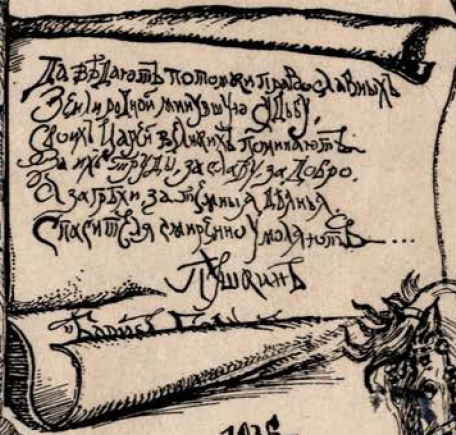 Да вѣдаютъ потомки православныхъ
Земли родной минувшую судьбу,
Своихъ Царей великихъ поминаютъ
За ихъ труды, за славу, за добро.
А за грѣхи, за темныя дѣянья
Спасителя смиренно умоляютъ....
Пушкинъ
"Борисъ